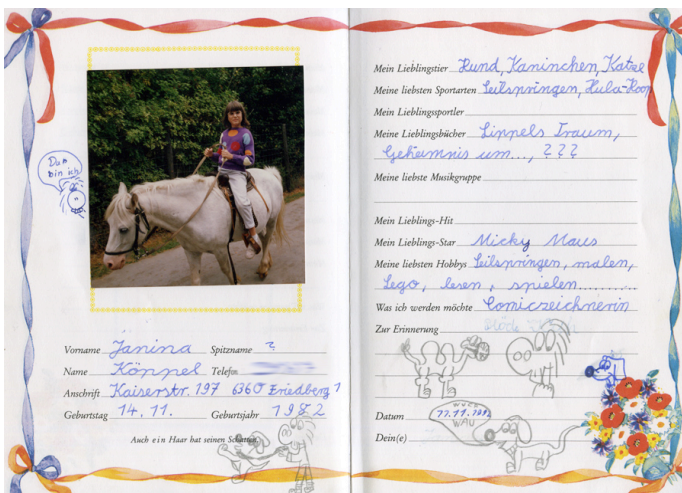 Das
bin ich
Vorname Janina Spitzname ?
Name Köppel Telefon
Anschrift Kaiserstr. 197 6360 Friedberg 1
Geburtstag 14.11. Geburtsjahr 1982
Auch ein Haar hat seinen Schatten.
Mein Lieblingstier Hund, Kaninchen, Katze
Meine liebsten Sportarten Seilspringen, Hula-Hoop
Mein Lieblingssportler
Meine Lieblingsbücher Lippels Traum,
Geheimnis um..., ? ? ?
Meine liebste Musikgruppe
Mein Lieblings-Hit
Mein Lieblings-Star Micky Maus
Meine liebsten Hobbys Seilspringen, malen,
Lego, lesen, spielen.........
Was ich werden möchte Comiczeichnerin
Zur Erinnerung
Datum
WAU
Dein(e)